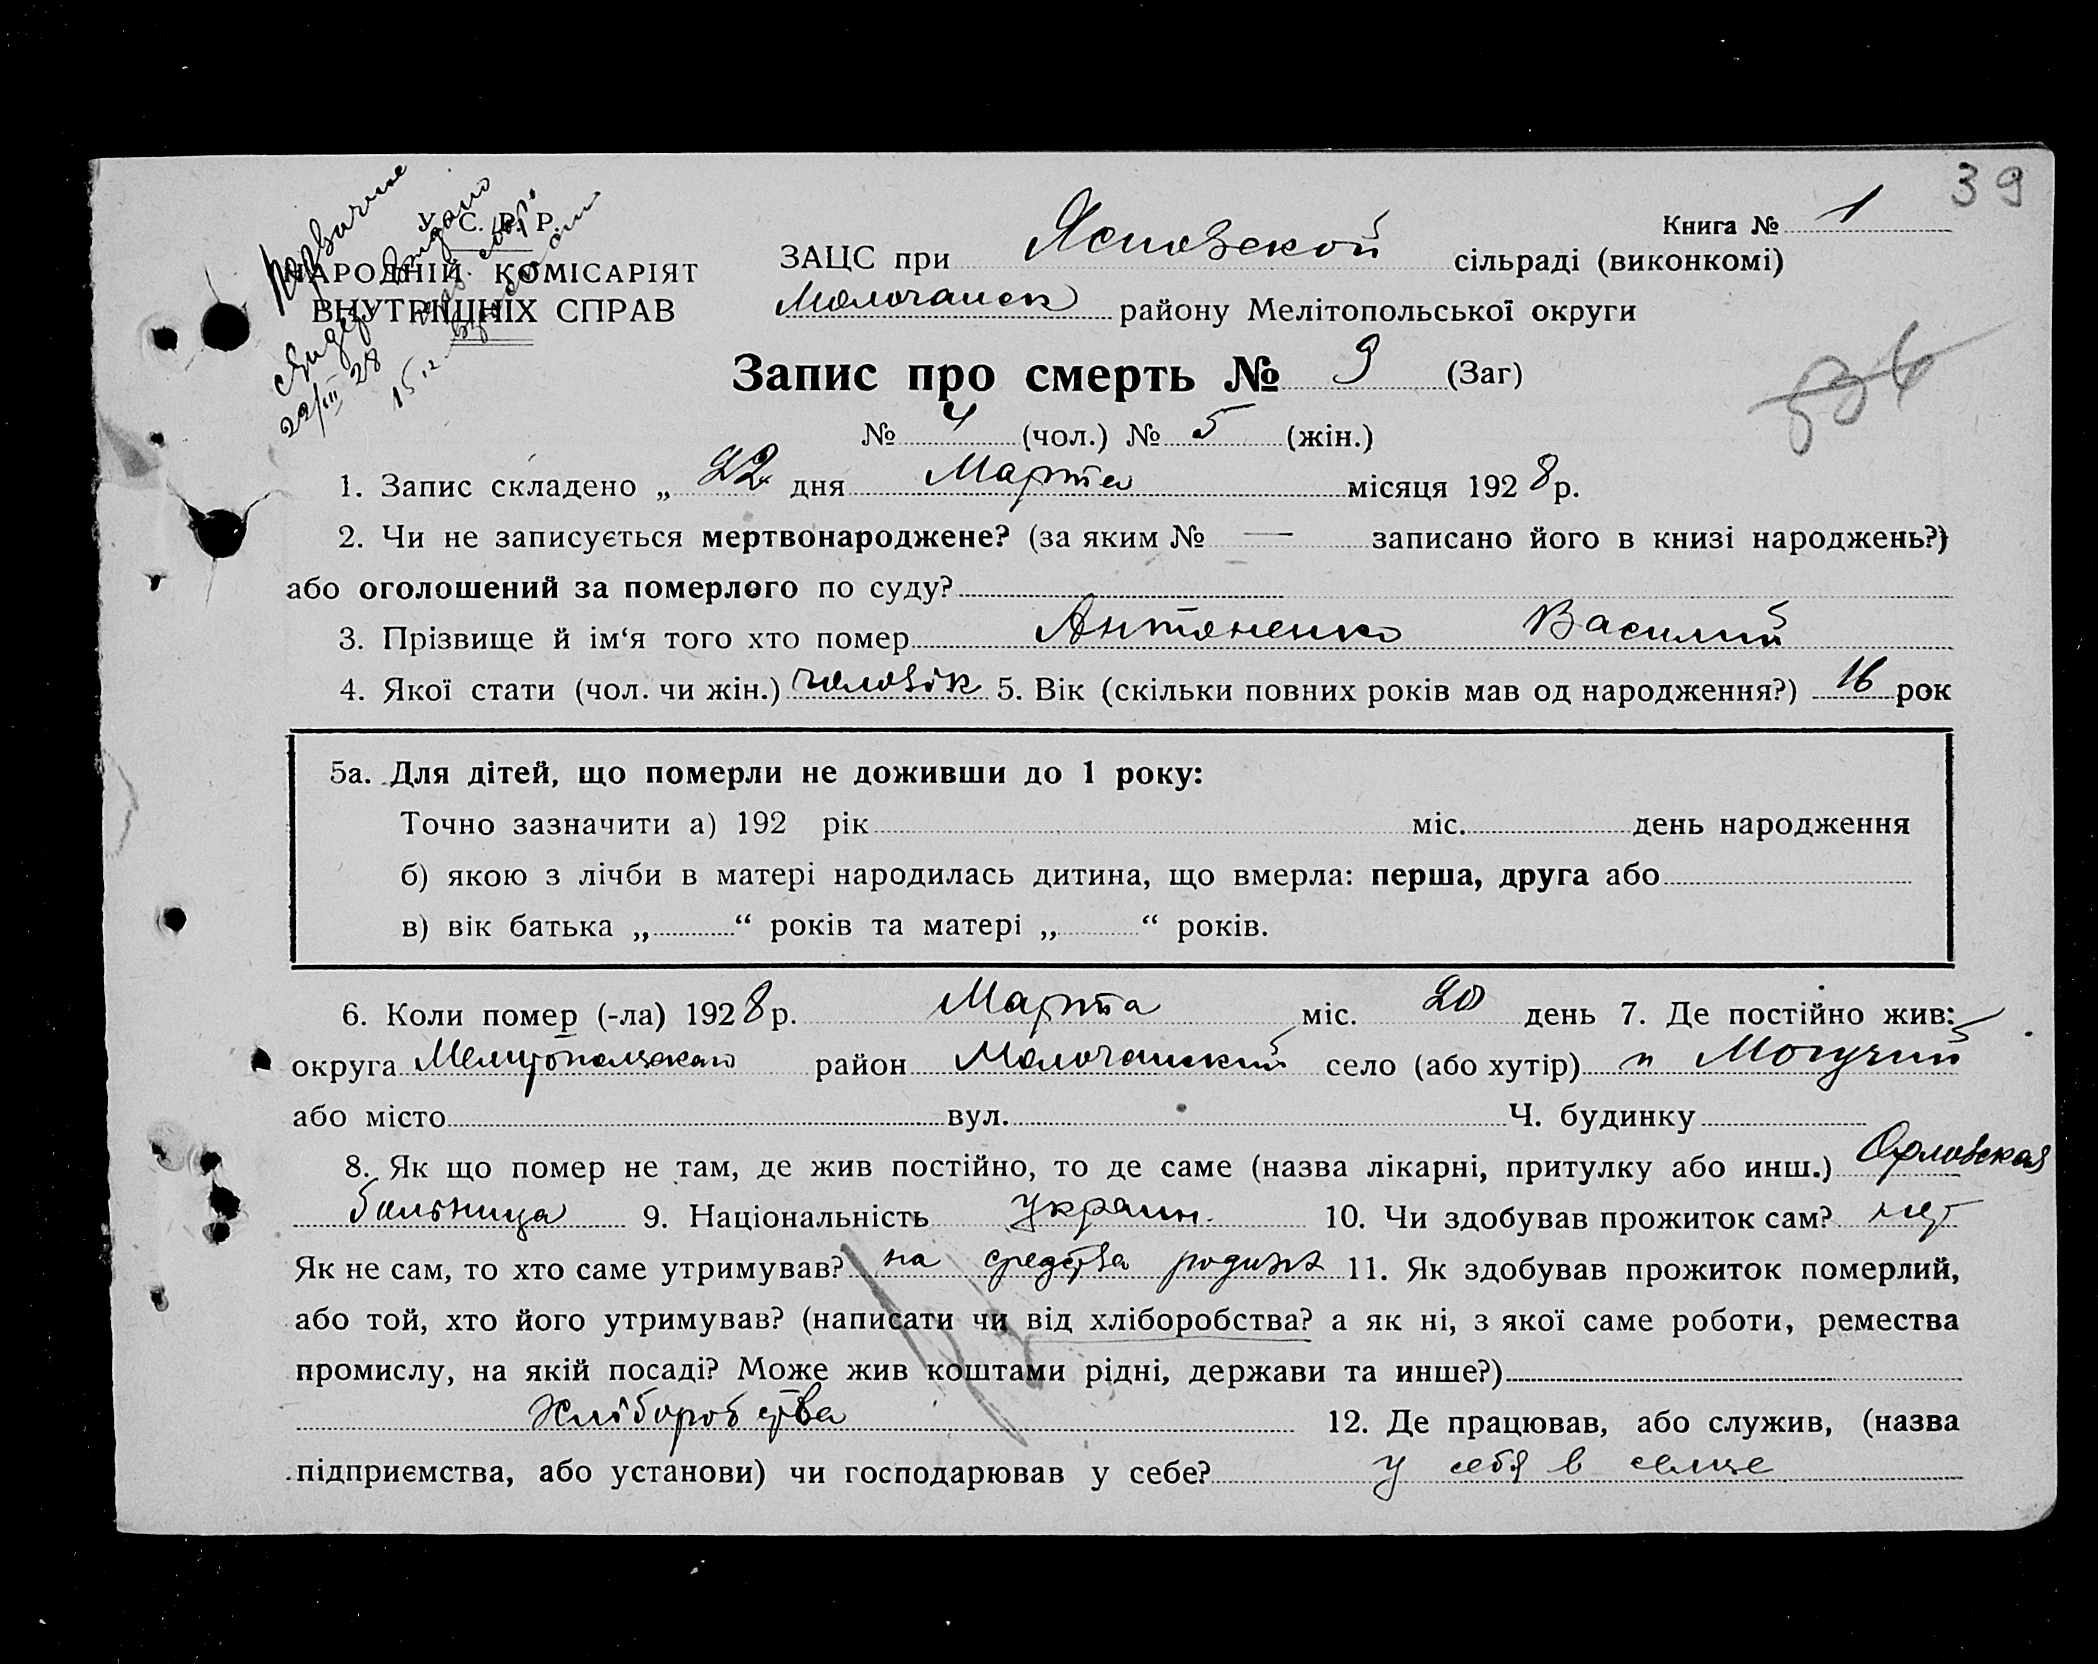 39
У. С. Р. Р.
НАРОДНІЙ КОМІСАРІЯТ
ВНУТРІШНІХ СПРАВ
22/III 28
15.12
Книга № 1
ЗАЦС при сільраді (виконкомі)
Молочанск району Мелітопольської округи
Запис про смерть № 9 (Заг)
№ 4 (чол.) № 5 (жін.)
1. Запис складено „ 22 дня Марта місяця 1928 р.
2. Чи не записується мертвонароджене? (за яким № — записано його в книзі народжень?)
або оголошений за померлого по суду?
3. Прізвище й ім‘я того хто помер Антоненко Василий
4. Якої стати (чол. чи жін.) человік 5. Вік (скільки повних років мав од народження?) 16 рок
5а. Для дітей, що померли не доживши до 1 року:
Точно зазначити а) 192 рік міс. день народження
б) якою з лічби в матері народилась дитина, що вмерла: перша, друга або
в) вік батька „ “ років та матері „ “ років.
6. Коли помер (-ла) 1928 р. Марта міс. 20 день 7. Де постійно жив:
округа район Молочанский село (або хутір) п Могучий
або місто вул. Ч. будинку
8. Як що помер не там, де жив постійно, то де саме (назва лікарні, притулку або инш.) Орловская
больница 9. Національність украин. 10. Чи здобував прожиток сам? нет
Як не сам, то хто саме утримував? на средства 11. Як здобував прожиток померлий,
або той, хто його утримував? (написати чи від хліборобства? а як ні, з якої саме роботи, ремества
промислу, на якій посаді? Може жив коштами рідні, держави та инше?)
Хліборобства 12. Де працював, або служив, (назва
підприємства, або установи) чи господарював у себе? у себя в селе